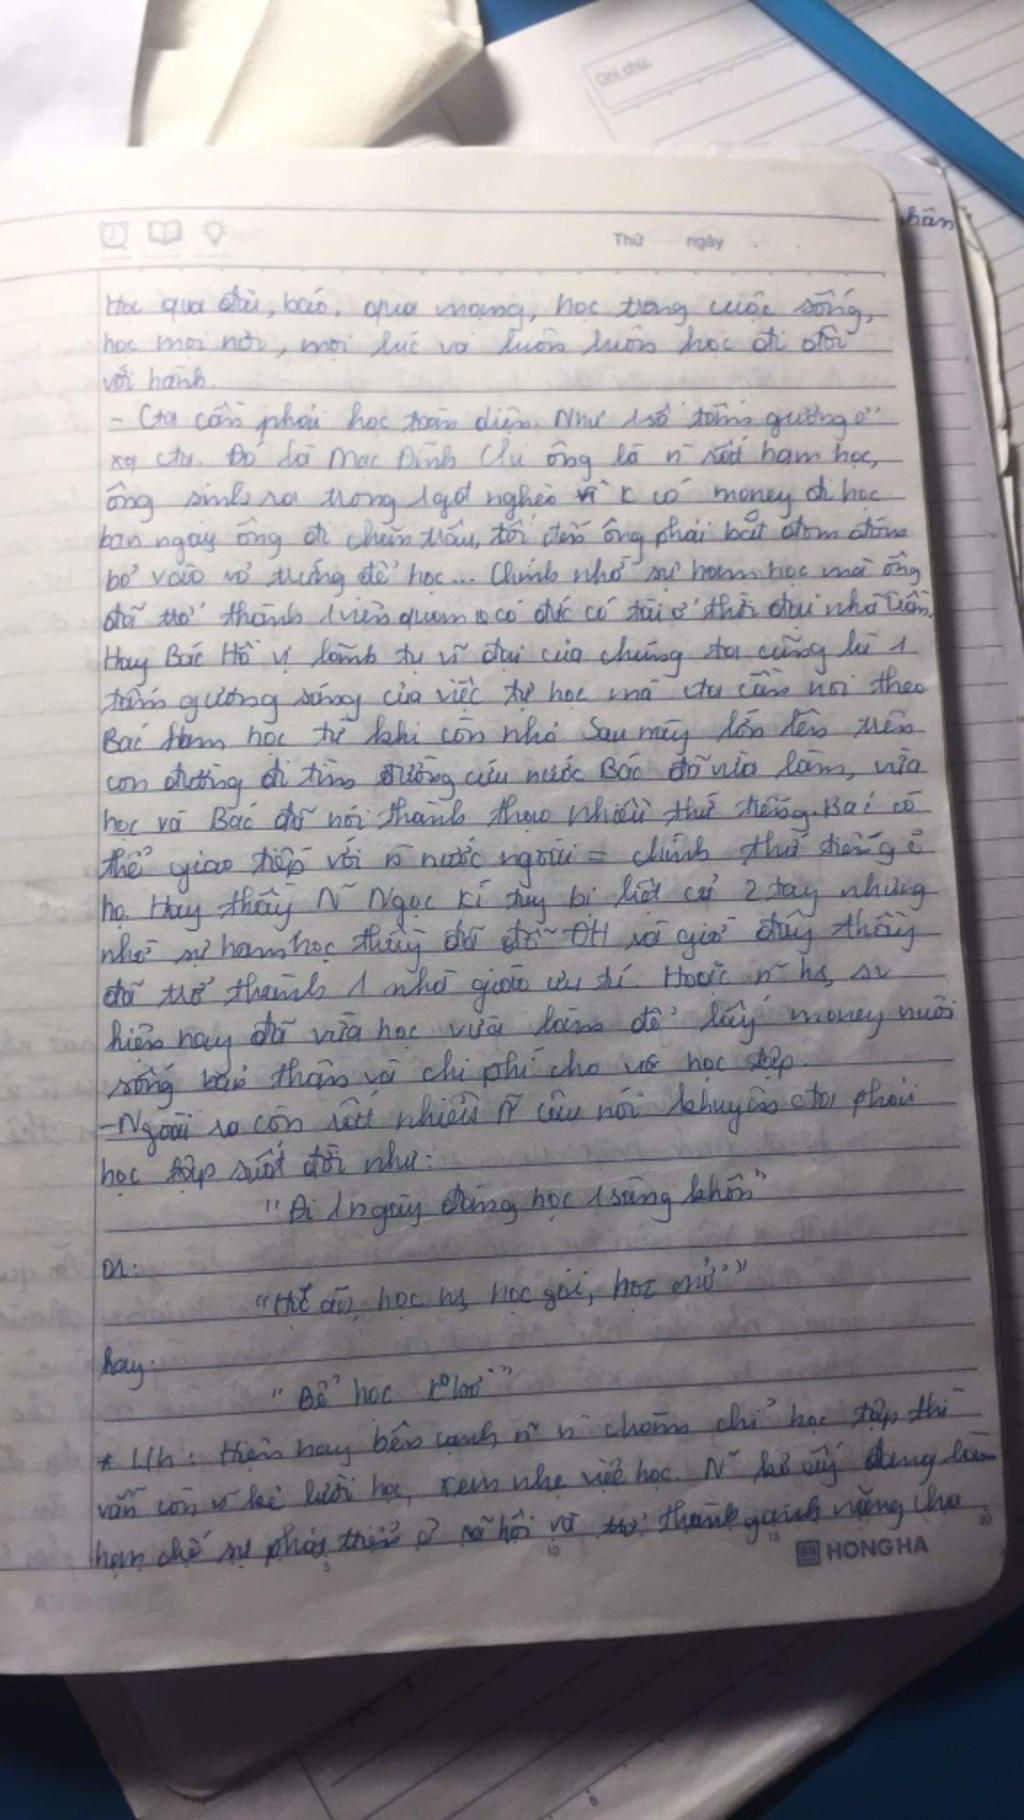 Ghi chú:
hân
Thứ ngày
Học qua đài, báo, qua mạng, học trong cuộc sống,
học mọi nơi, mọi lúc và luôn luôn học đi đôi
với hành.
- Cta cần phải học toàn diện. Như 1 số tấm gương ở
xq cta. Đó là Mạc Đĩnh Chi ông là n rất ham học,
ông sinh ra trong 1 gđ nghèo vì k có money đi học
ban ngày ông đi chăn trâu, tối đến ông phải bắt đom đóm
bỏ vào vỏ trứng để học... Chính nhờ sự ham học mà ông
đã trở thành 1 viên quan có đức có tài ở thời đại nhà Trần.
Hay Bác Hồ vị lãnh tụ vĩ đại của chúng ta cũng là 1
tấm gương sáng của việc tự học mà cta cần noi theo
Bác ham học từ khi còn nhỏ sau này lớn lên trên
con đường đi tìm đường cứu nước Bác đã vừa làm, vừa
học và Bác đã nói thành thạo nhiều thứ tiếng. Bác có
thể giao tiếp với n nước ngoài = chính thứ tiếng ở
họ. Hay thầy N Ngọc Kí tuy bị liệt cả 2 tay nhưng
nhờ sự ham học thầy đã đỗ ĐH và giờ đây thầy
đã trở thành 1 nhà giáo ưu tú. Hoặc n~ hs, sv
hiện nay đã vừa học vừa làm để lấy money nuôi
sống bản thân và chi phí cho học tập.
- Ngoài ra còn rất nhiều n~ câu nói khuyên cta phải
học tập suốt đời như:
"Đi 1 ngày đàng học 1 sàng khôn"
or:
"Học ăn, học ns, học gói, học mở"
hay:
"Bể học"
* Lh: Hiện nay bên cạnh n~ n chăm chỉ học tập thì
vẫn còn n~ kẻ lười học, xem nhẹ việc học. N~ kẻ ấy đang làm
hạn chế sự phát triển ở xã hội và thành gánh nặng cho
5 10 15 20
HONG HA